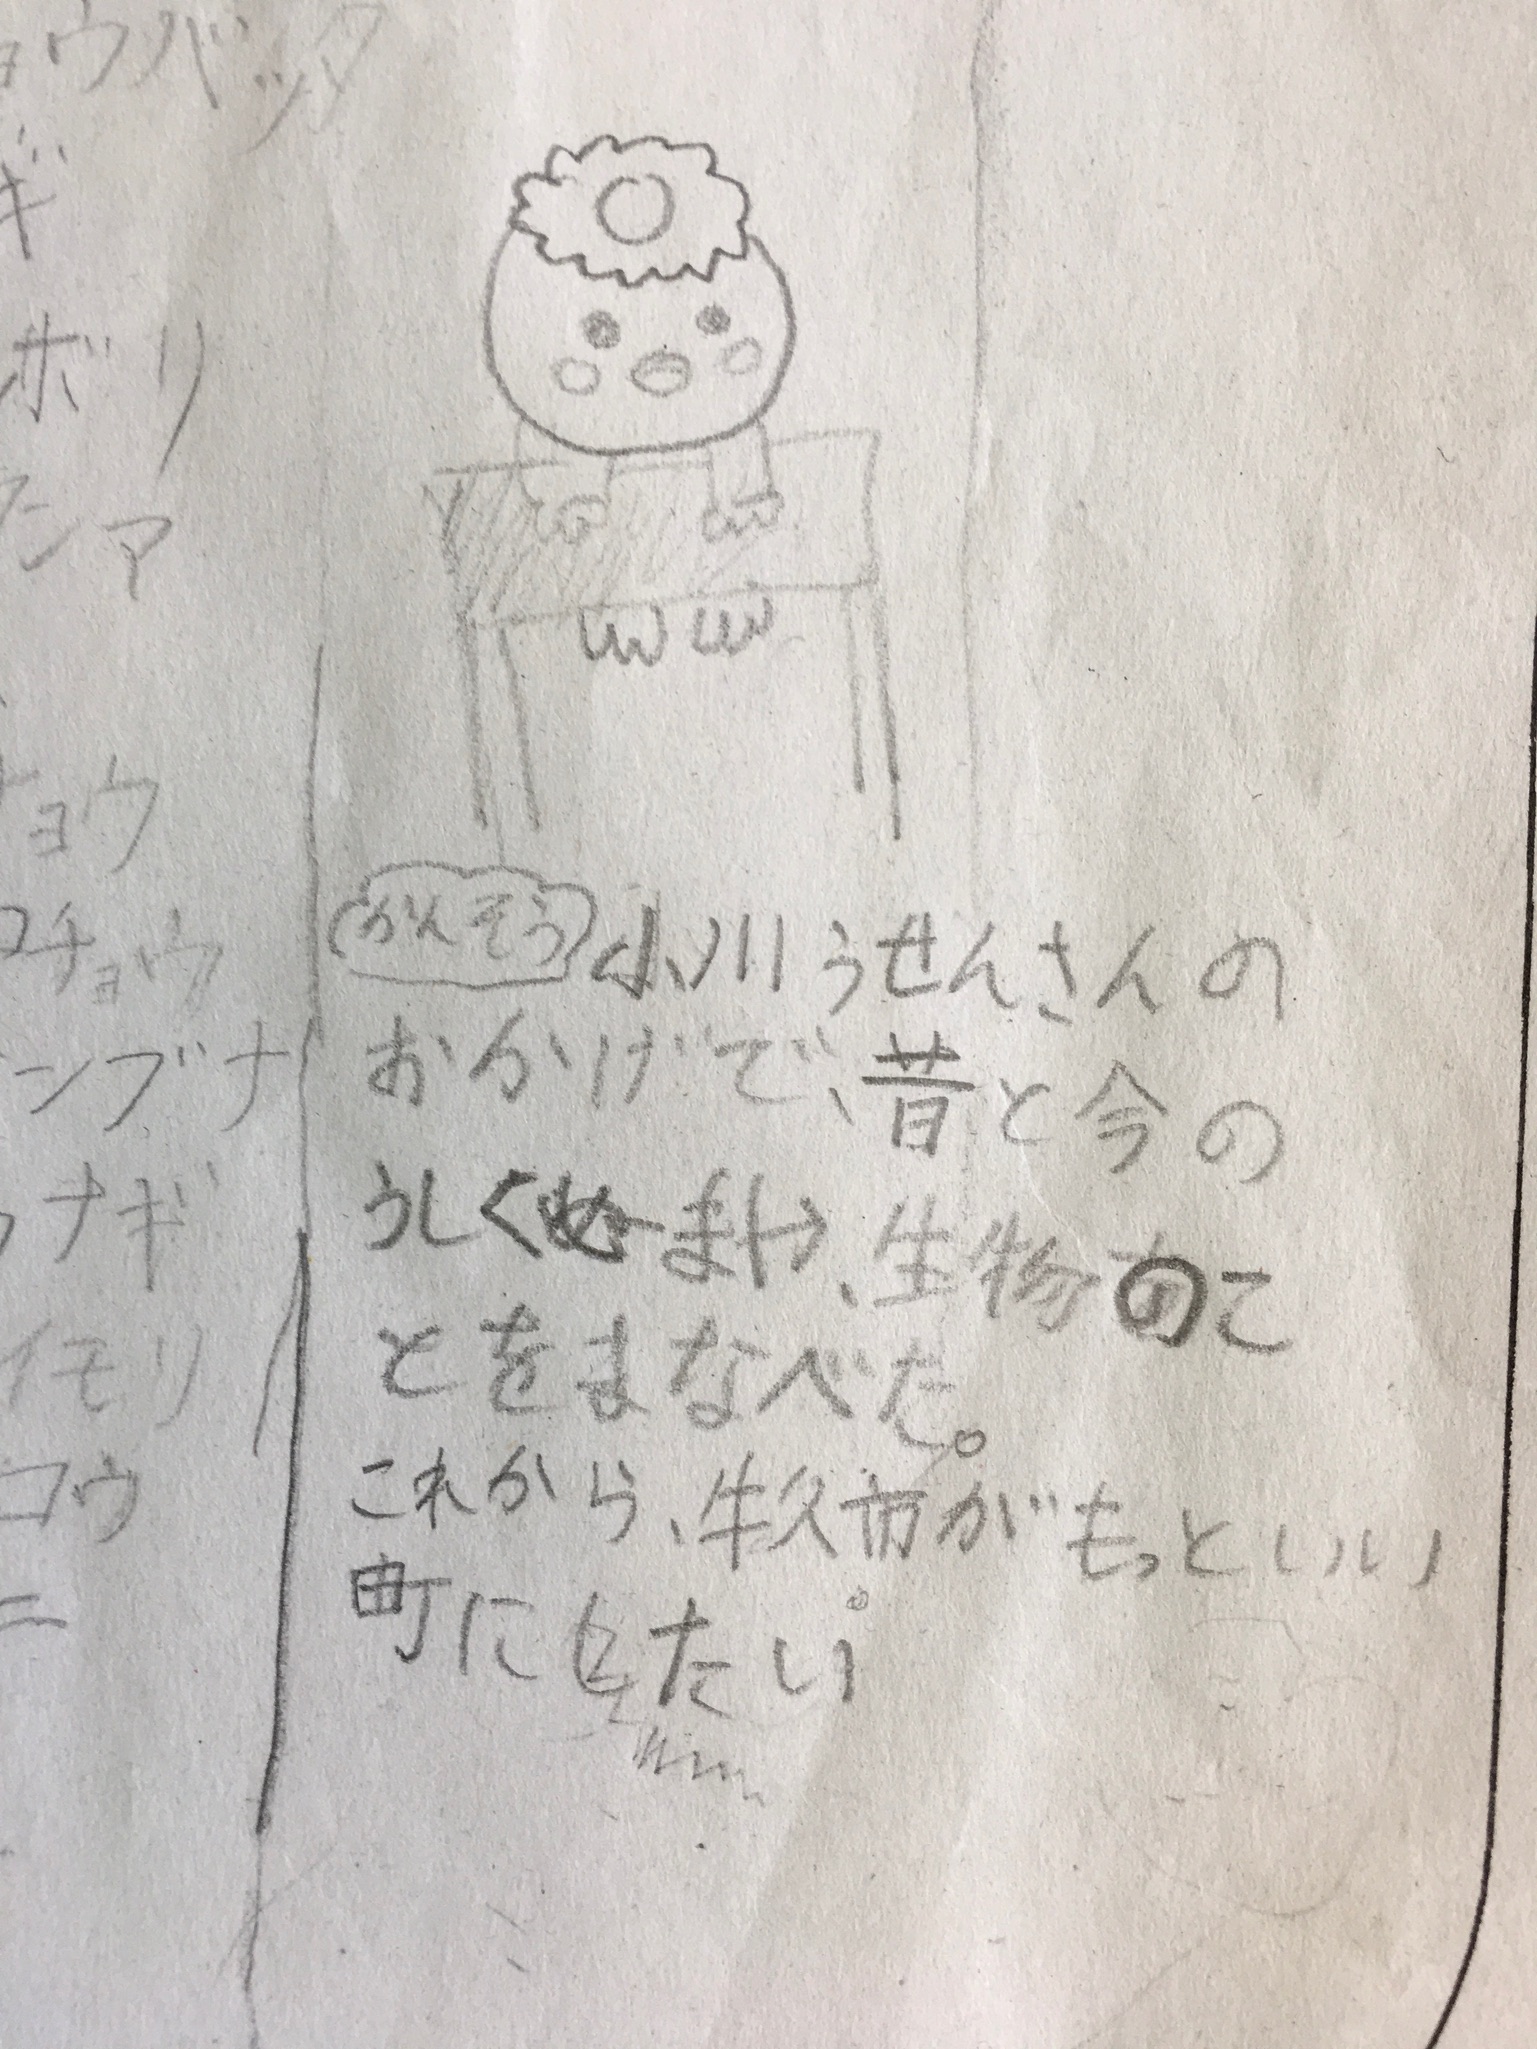 ョウバッタ
ギ
ボリ
ンマ
チョウ
ロチョウ
ンブナ
ナギ
イモリ
コウ
ニ
かんそう 小川うせんさんの
おかげで、昔と今の
うしくぬまや、生物のこ
とをまなべた。
これから、牛久市がもっといい
町にしたい。